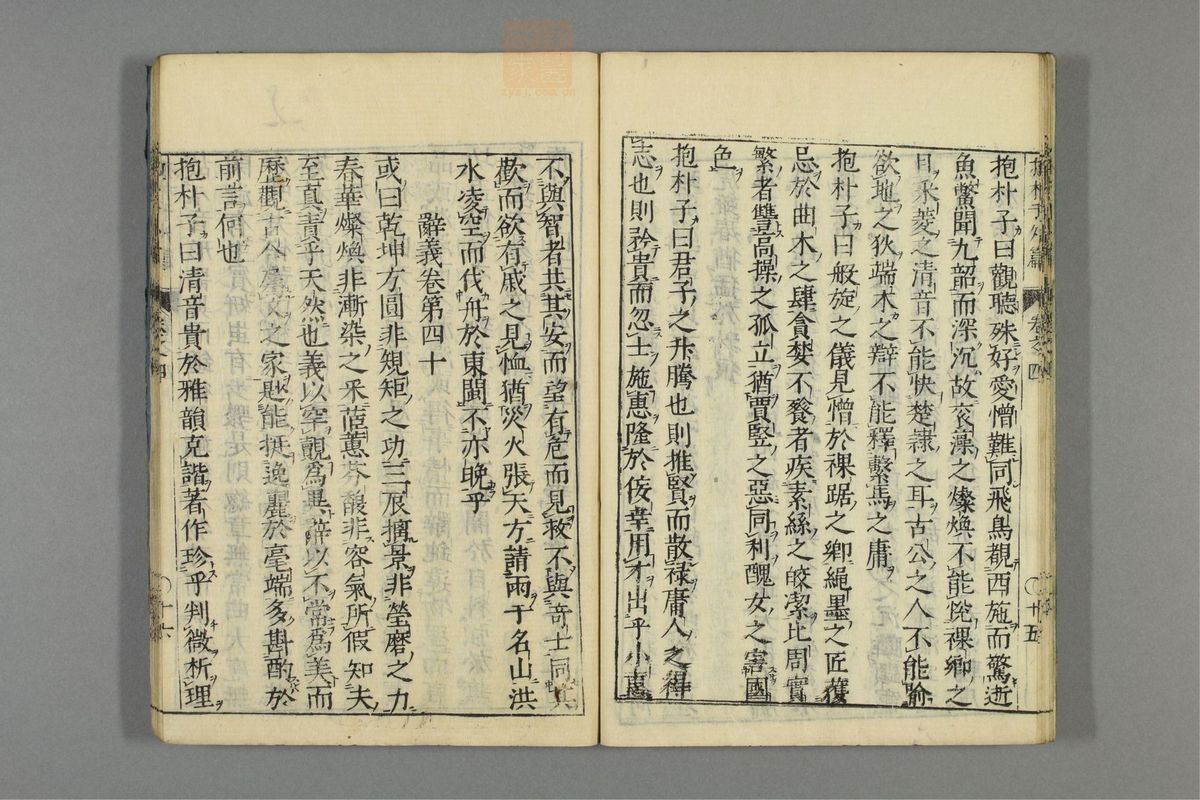 抱朴子曰觀聽殊好愛憎難同飛鳥覩西施而驚逝
魚鱉聞九韶而深沉故衮藻之燦煥不能悅裸鄉之
目采菱之清音不能快楚隷之耳古公之仁不能喻
欲地之狄端木之辯不能釋繫馬之庸
抱朴子曰般旋之儀見憎於裸踞之鄉繩墨之匠獲
忌於曲木之肆貪婪不餮者疾素絲之皎潔比周實
繁者讐高操之孤立猶賈竪之惡同利醜女之害國
色
抱朴子曰君子之升騰也則推賢而散禄庸人之得
志也則矜貴而忽士施惠隆於佞幸用才出乎小惠
不與智者共其安而望有危而見救不與奇士同其
歡而欲有戚之見恤猶災火張天方請雨于名山洪
水凌空而伐舟於東閩不亦晚乎
辭義卷第四十
或曰乾坤方圓非規矩之功三辰摛景非瑩磨之力
春華燦煥非漸染之采茝蕙芬馥非容氣所假知夫
至真貴乎天然也義以罕覿為異辭以不常為美而
歷觀古今屬文之家尠能挺逸麗於毫端多斟酌於
前言何也
抱朴子曰清音貴於雅韻克諧著作珍乎判微析理
抱朴子外篇
卷之四
廿五
卷之四
廿六
zysj.com.cn